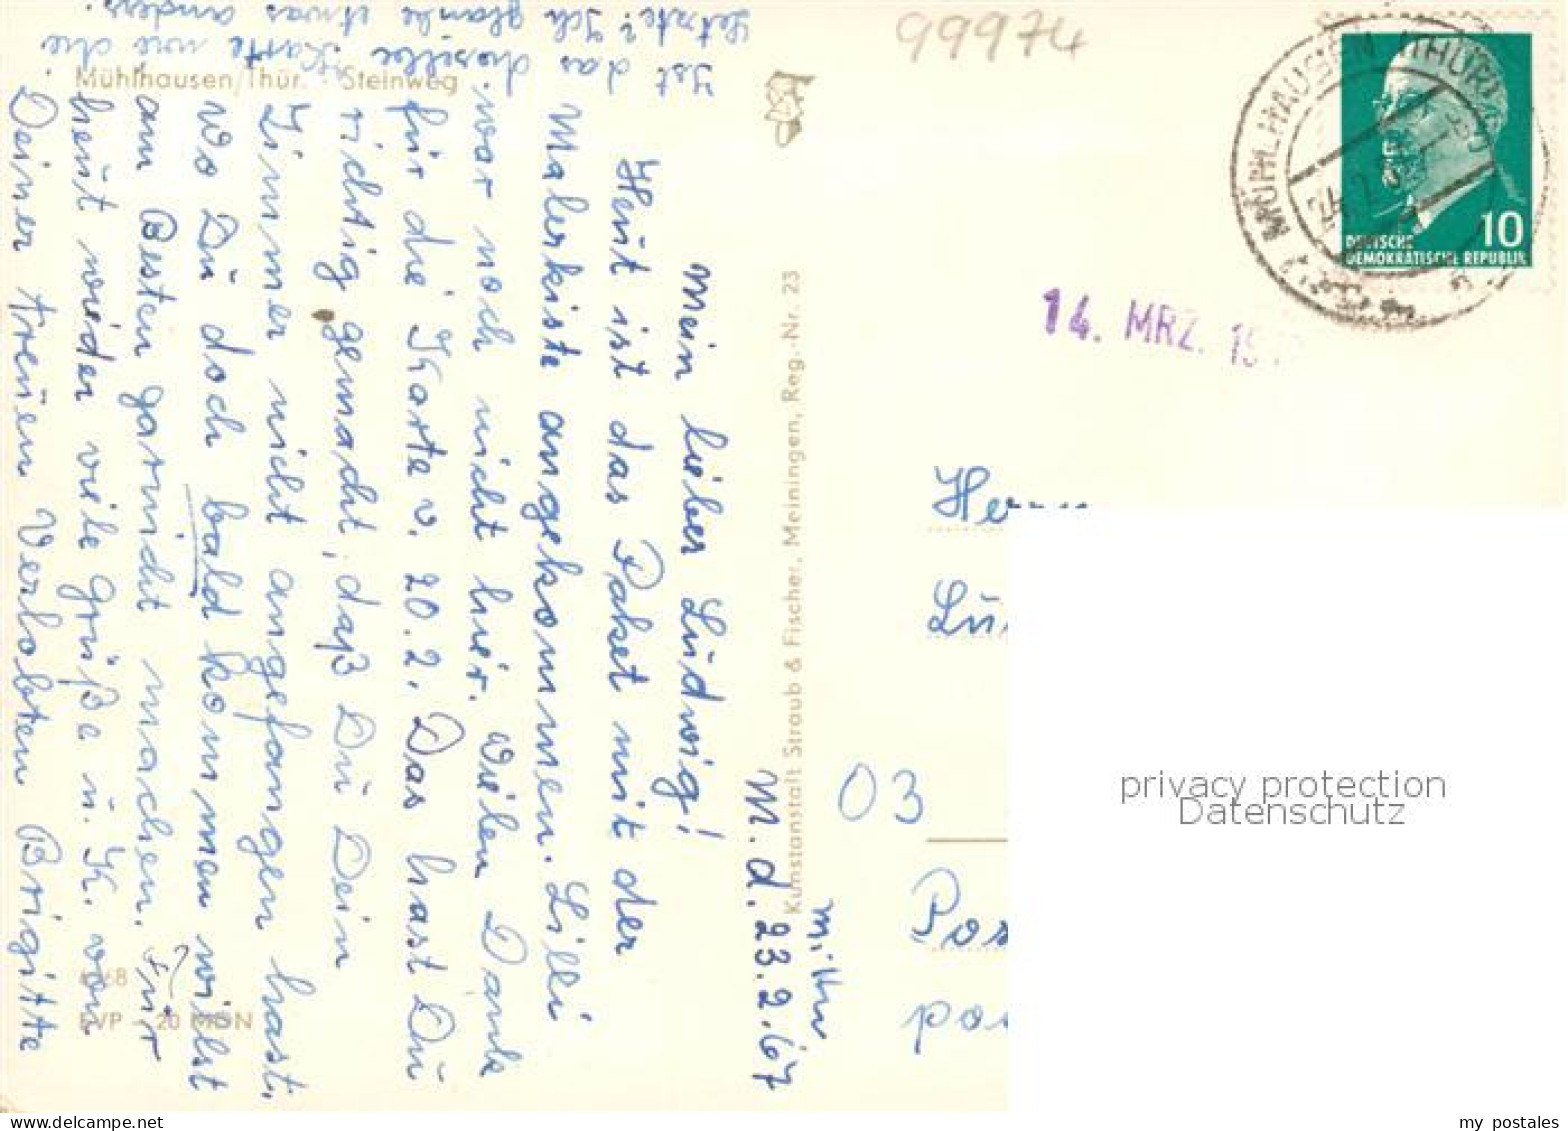 99974
MÜHLHAUSEN (THÜR)
10
DEUTSCHE
DEMOKRATISCHE REPUBLIK
14. MRZ. 19
Mühlhausen/Thür. Steinweg
M. d. 23.2.67
Mein lieber Ludwig!
Heut ist das Paket mit der
Malerkiste angekommen. Lilli
war noch nicht hier. Vielen Dank
für die Karte v. 20.2. Das hast Du
richtig gemacht, daß Du Dein
Zimmer nicht angefangen hast.
Wo Du doch bald kommen willst
am Besten garnicht machen. Für
heut wieder viele Grüße u. K. von
Deiner treuen Verlobten Brigitte
Ist das dieselbe Karte wie die
Letzte? Ich glaube etwas
anders.
Kunstanstalt Straub & Fischer, Meiningen, Reg.-Nr. 23
03
EVP - 20 MDN
Pos
pos
privacy protection
Datenschutz
my postales